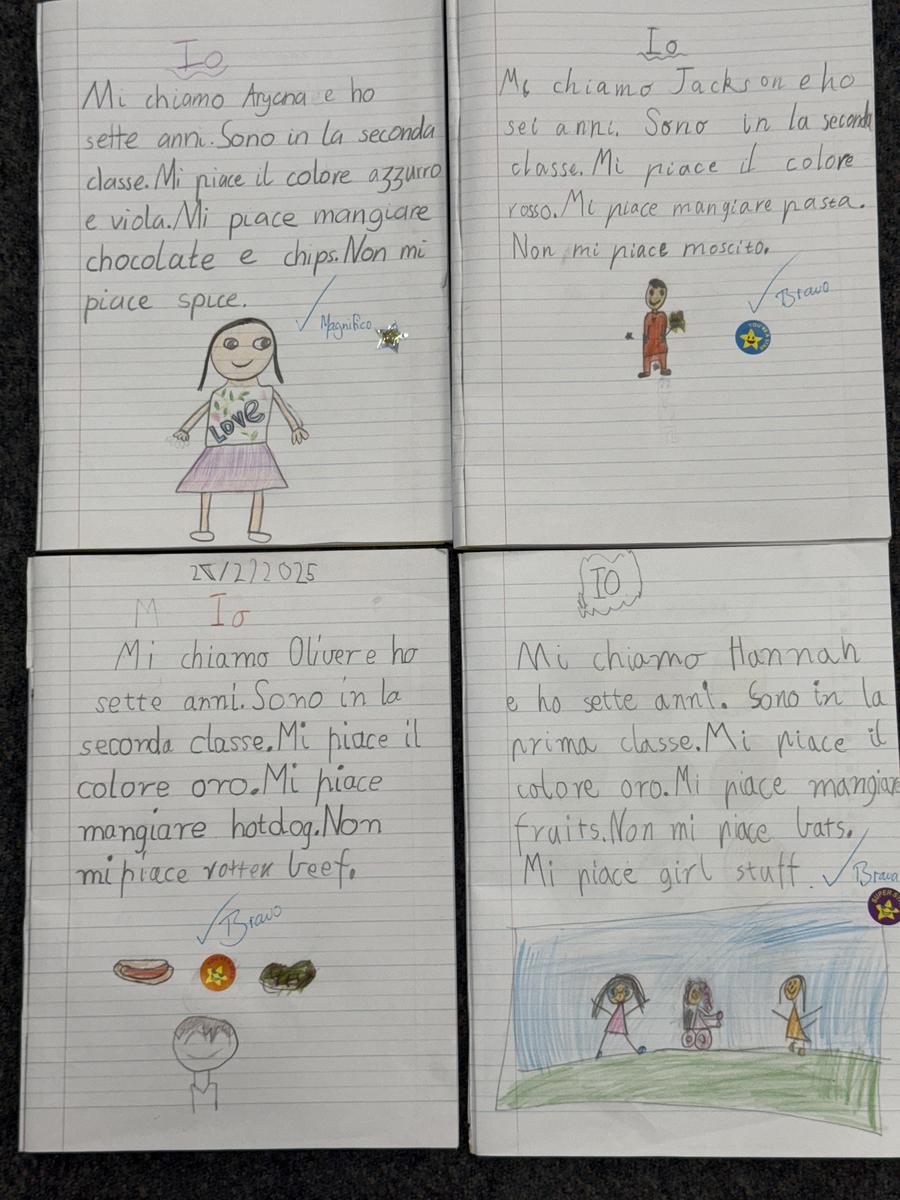 Io
Mi chiamo Aryana e ho
sette anni. Sono in la seconda
classe. Mi piace il colore azzurro
e viola. Mi piace mangiare
chocolate e chips. Non mi
piace spice.
Magnifico
LOVE
Io
Mi chiamo Jackson e ho
sei anni. Sono in la seconda
classe. Mi piace il colore
rosso. Mi piace mangiare pasta.
Non mi piace moscito.
Bravo
28/2/2025
M Io
Mi chiamo Oliver e ho
sette anni. Sono in la
seconda classe. Mi piace il
colore oro. Mi piace
mangiare hotdog. Non
mi piace rotten beef.
Bravo
IO
Mi chiamo Hannah
e ho sette anni. Sono in la
prima classe. Mi piace il
colore oro. Mi piace mangiare
fruits. Non mi piace bats.
Mi piace girl stuff.
Brava